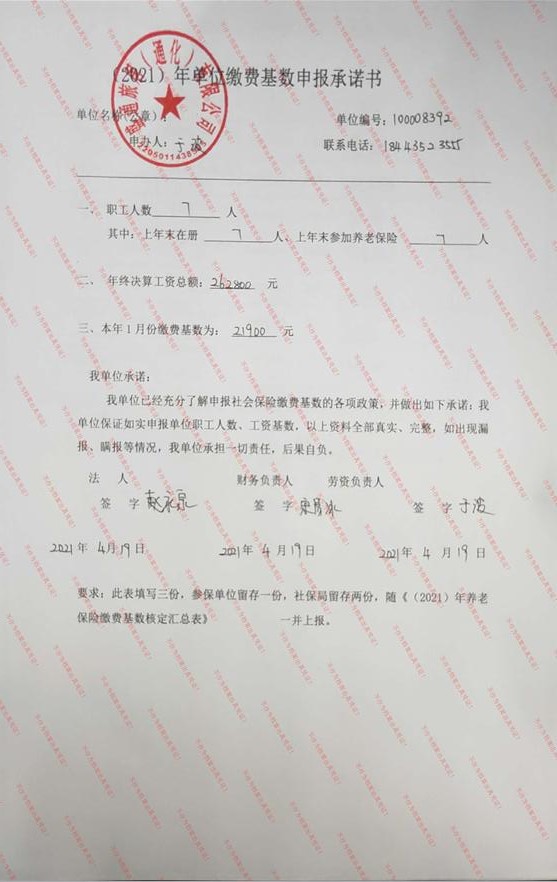 (2021) 年单位缴费基数申报承诺书
单位名称(公章):
单位编号: 100008392
申办人: 于波
联系电话: 18443523555
(通化)有限公司
2205011438505
一、 职工人数 7 人
其中: 上年末在册 7 人、上年末参加养老保险 7 人
二、 年终决算工资总额: 262800 元
三、本年 1 月份缴费基数为: 21900 元
我单位承诺:
我单位已经充分了解申报社会保险缴费基数的各项政策,并做出如下承诺: 我
单位保证如实申报单位职工人数、工资基数,以上资料全部真实、完整,如出现漏
报、瞒报等情况,我单位承担一切责任,后果自负。
法 人 财务负责人 劳资负责人
签 字 赵永泉 签 字 签 字 于波
2021 年 4月19日 2021年 4 月19日 2021年 4 月 19 日
要求: 此表填写三份,参保单位留存一份,社保局留存两份,随《(2021)年养老
保险缴费基数核定汇总表》 一并上报。